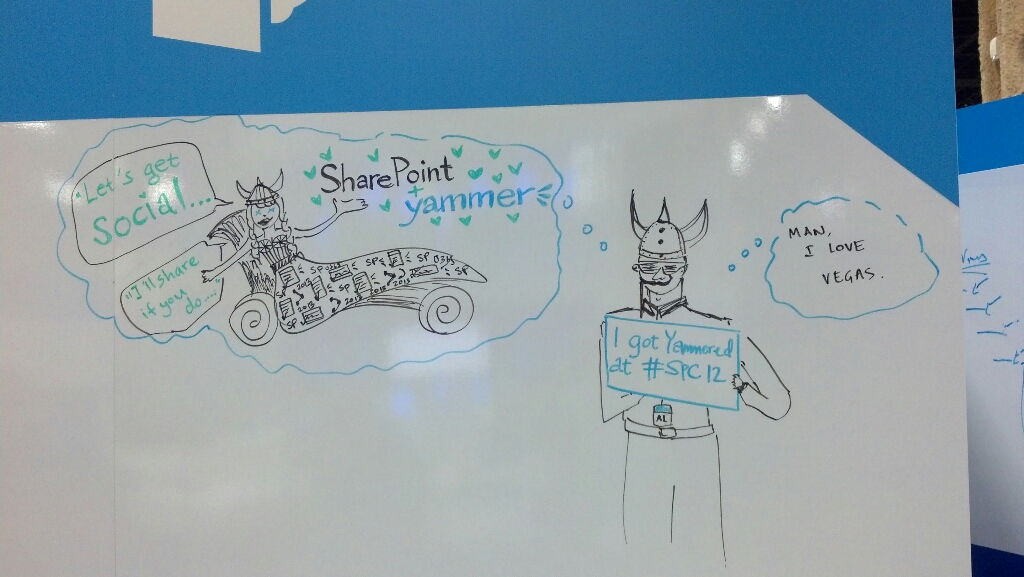 "Let's get
Social...
"I'll share
if you
do...."
SharePoint
+
yammer
SP
SP
SP
SP
2013
SP
2013
SP
2013
SP
2013
MAN,
I LOVE
VEGAS.
I got Yammered
at #SPC12
AL